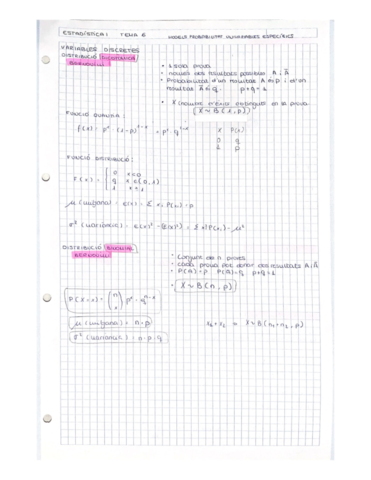 ESTADÍSTICA I TEMA 6 MODELS PROBABILITAT UNIVARIABLES ESPECÍFICS
VARIABLES DISCRETES
DISTRIBUCIÓ DICOTÒMICA
BERNOULLI
• 1 sola prova
• només dos resultats possibles A i Ā
• Probabilitat d'un resultat A és p i d'un
resultat Ā és q. p+q=1
• X (nombre èxits obtinguts en la prova
X ~ B(1, p)
FUNCIÓ QUANTIA:
f(x) = pˣ · (1-p)¹⁻ˣ = pˣ · q¹⁻ˣ
X P(x)
0 q
1 p
FUNCIÓ DISTRIBUCIÓ:
F(x) = { 0 x<0
q x∈[0,1)
1 x≥1
μ (mitjana) = E(x) = Σ xᵢ P(xᵢ) = p
DISTRIBUCIÓ BINOMIAL
BERNOULLI
• Conjunt de n proves
• cada prova pot donar dos resultats A i Ā
• P(A)=p P(Ā)=q p+q=1
• X ~ B(n, p)
P(X=x) = (n x) pˣ · qⁿ⁻ˣ
μ (mitjana) = n · p
x₁ + x₂ = X ~ B(n₁+n₂, p)
σ² (variància) = n · p · q